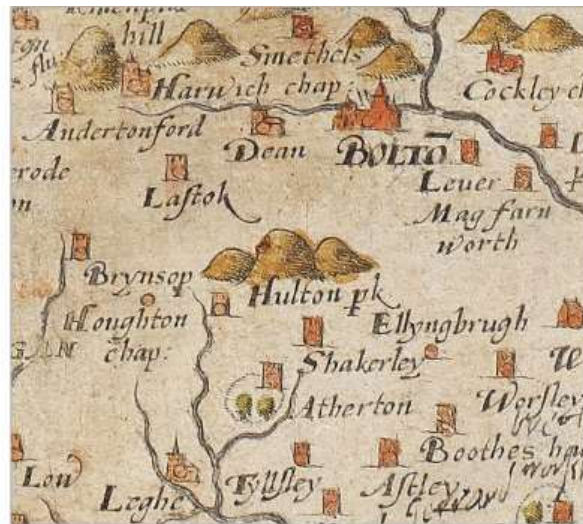 hill
Smethels
Harwich chap:
Cockley
flu
Andertonford
Dean
BOLTO̅
erode
Lever
Laſtok
Mag farn
worth
Brynsop
Hulton pk
Houghton
chap:
Ellyngbrugh
GAN
Shakerley
Atherton
Worſley
Boothes
Low
Leghe
Tyllſley
Aſtley